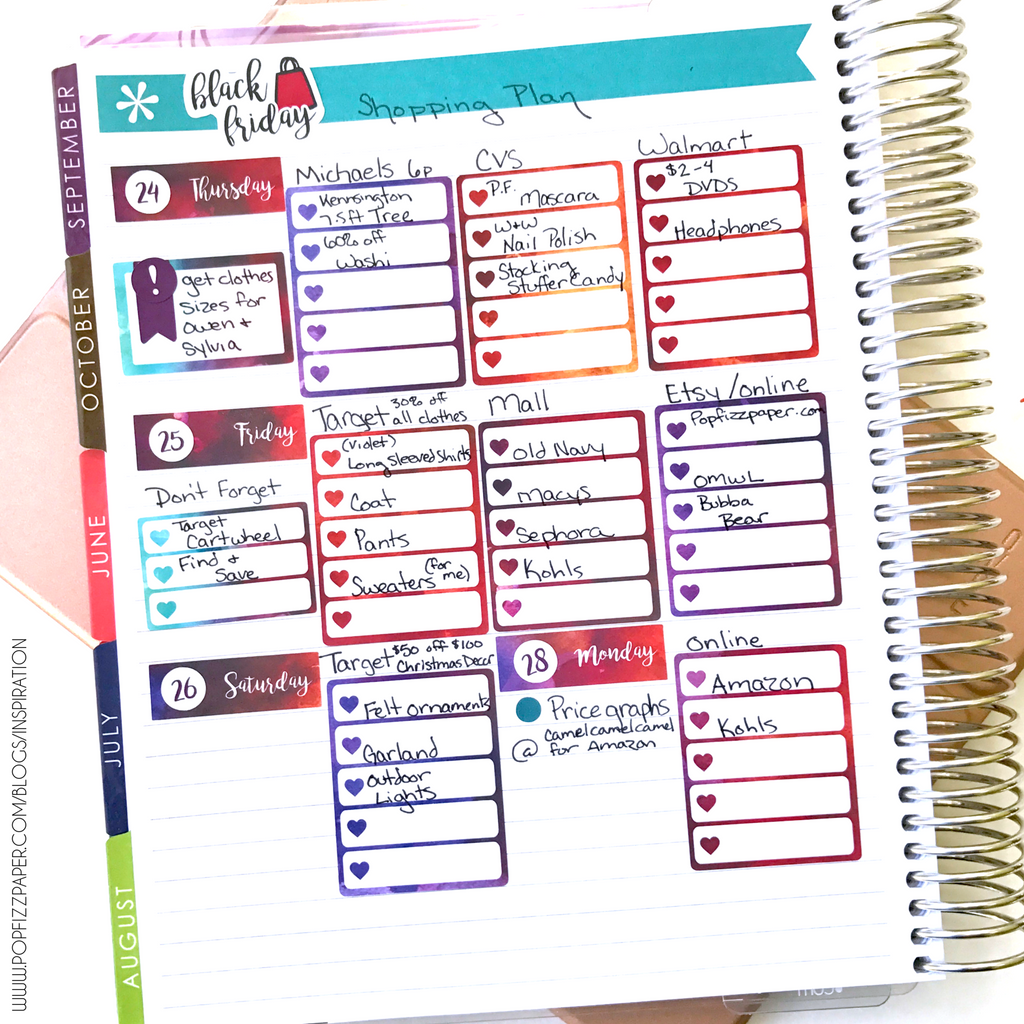 black
friday
Shopping Plan
SEPTEMBER
OCTOBER
JUNE
JULY
AUGUST
24 Thursday
!
get clothes
sizes for
Owen +
Sylvia
Michaels 6p
Kennsington
7.5ft Tree
60% off
Washi
CVS
P.F.
Mascara
W+W
Nail Polish
Stocking
Stuffer Candy
Walmart
$2-4
DVDS
Headphones
25 Friday
Don't Forget
Target
Cartwheel
Find +
Save
Target 30% off
all clothes
(Violet)
Long Sleeved Shirts
Coat
Pants
Sweaters (for
me)
Mall
Old Navy
Macys
Sephora
Kohls
Etsy/online
Popfizzpaper.com
OMWL
Bubba
Bear
26 Saturday
Target $50 off $100
Christmas Decor
Felt ornaments
Garland
Outdoor
Lights
28 Monday
Price graphs
@ camelcamelcamel
for Amazon
Online
Amazon
Kohls
WWW.POPFIZZPAPER.COM/BLOGS/INSPIRATION